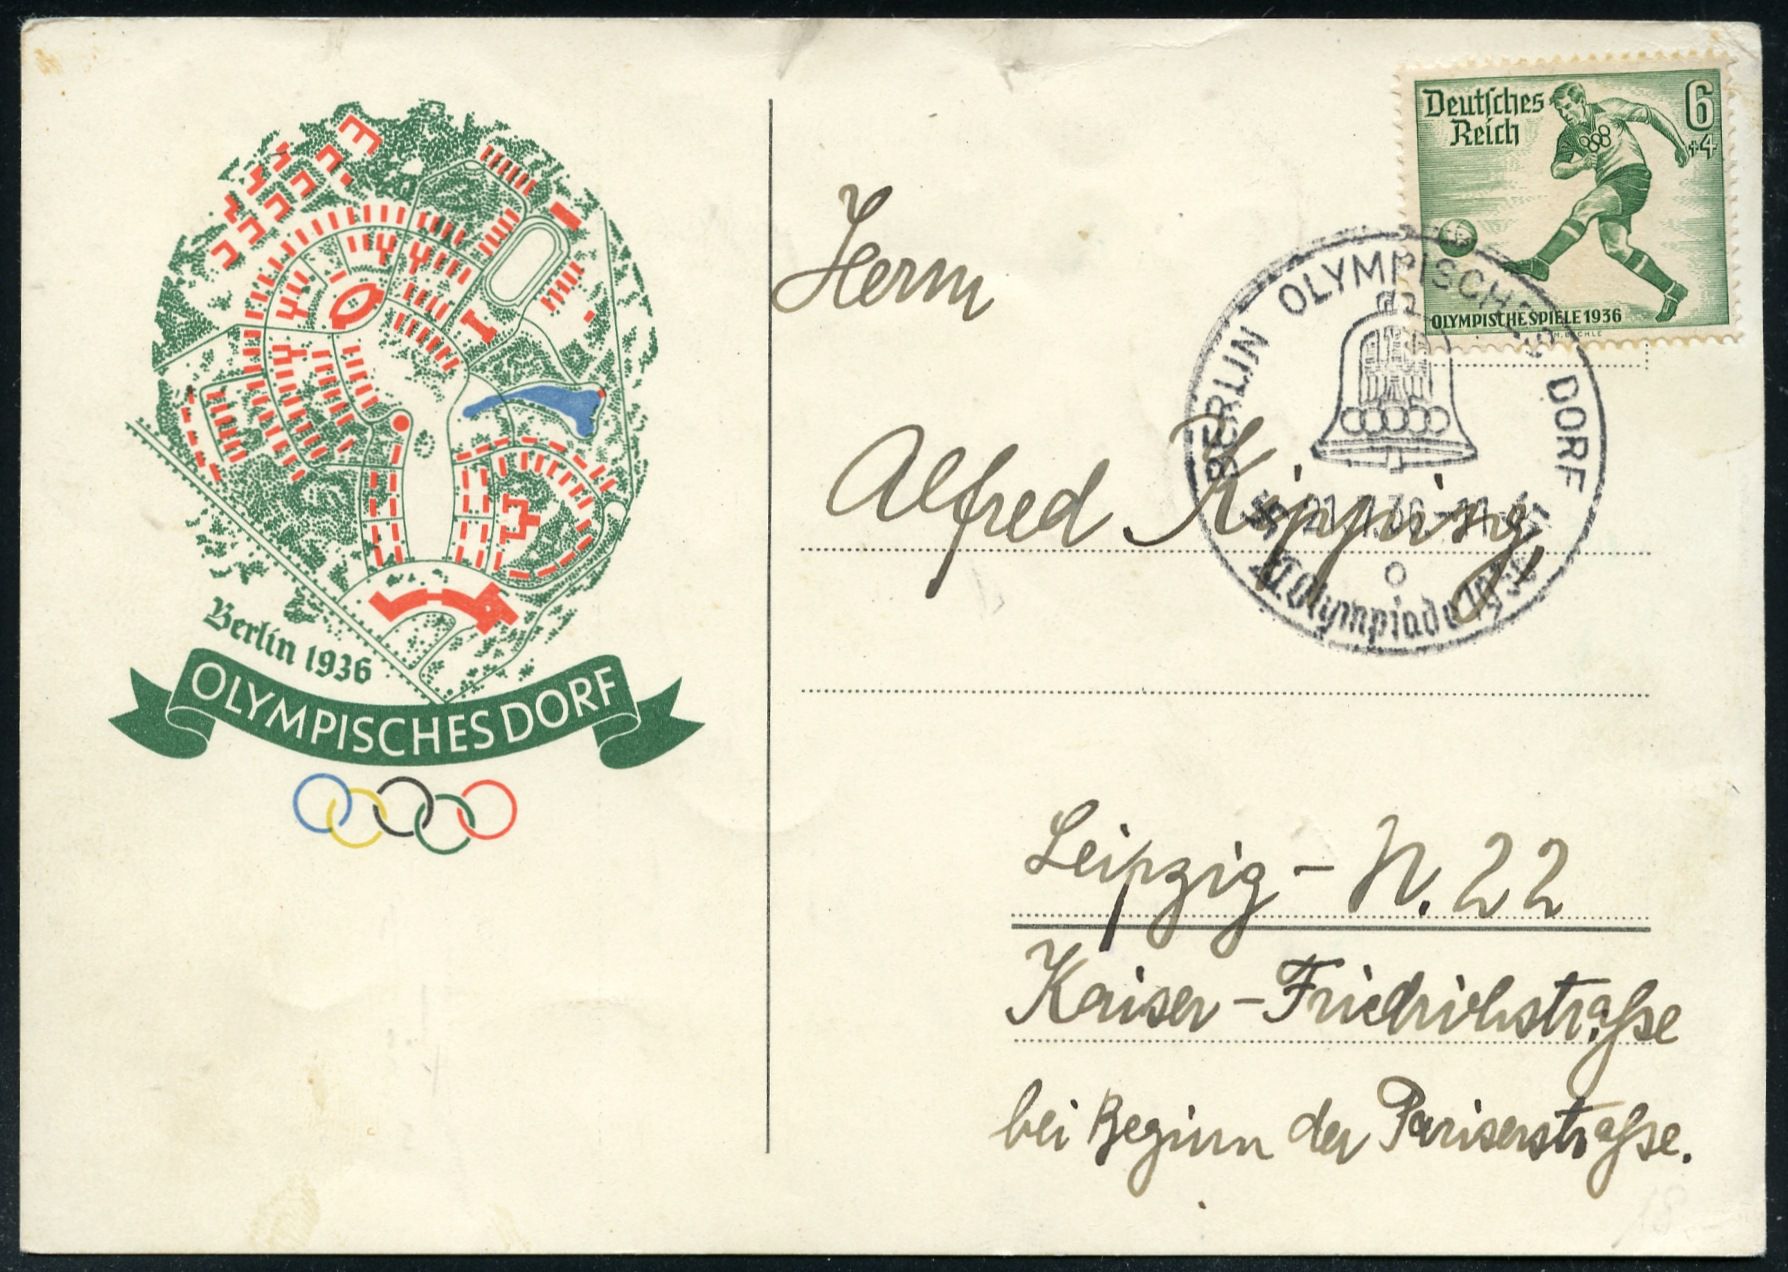 Berlin 1936
OLYMPISCHES DORF
Deutsches
Reich
6
+4
OLYMPISCHE SPIELE 1936
BERLIN OLYMPISCHES DORF
XI. Olympiade 1936
Herrn
Alfred Kipping,
Leipzig - N. 22
Kaiser - Friedrichstraße
bei Beginn der Pariserstraße.